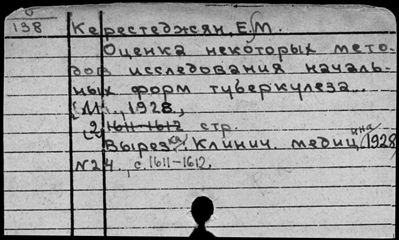 138
Керестеджян, Е. М.
Оценка некоторых мето-
дов исследования началь-
ных форм туберкулеза...
[М., 1928,]
[2] 1611-1612 стр.
Вырезка. Клинич. медицина, 1928
№24., с. 1611-1612.